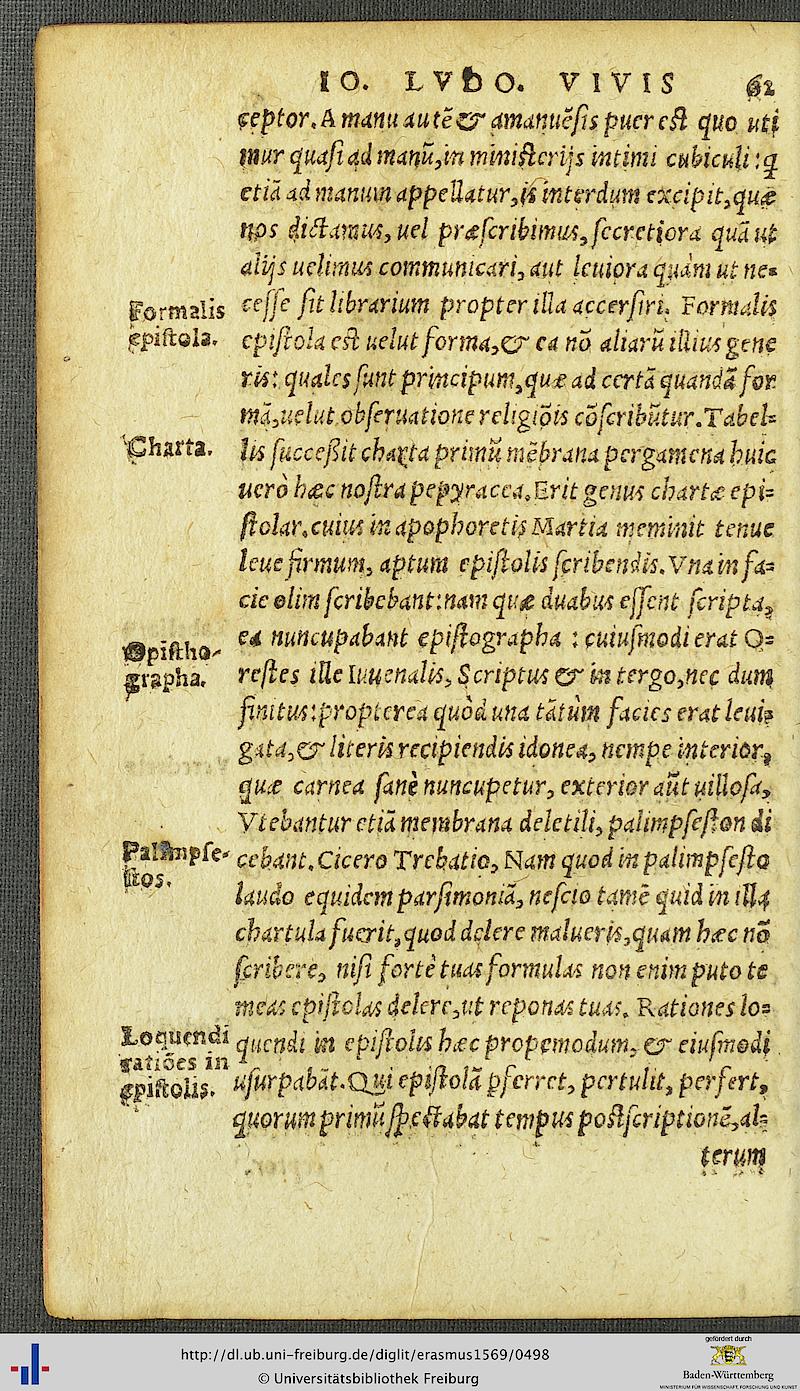 IO. LVDO. VIVIS 62
ceptor. A manu autē & amanuēſis puer eſt quo uti
mur quaſi ad manū, in miniſterijs intimi cubiculi: q
etiā ad manum appellatur, is interdum excipit, quæ
nos dictamus, uel præſcribimus, ſecretiora quā ut
alijs uelimus communicari, aut leuiora quàm ut ne-
ceſſe ſit librarium propter illa accerſiri. Formalis
epiſtola eſt uelut forma, & ea nō aliarū illius gene
ris: quales ſunt principum, quæ ad certā quandā for
mā, uelut obſeruatione religiōis cōſcribūtur. Tabel-
lis ſucceßit charta primū mēbrana pergamena huic
uerò hæc noſtra pepyracea. Erit genus chartæ epi-
ſtolar. cuius in apophoretis Martia meminit tenue
leue firmum, aptum epiſtolis ſcribendis. Vna in fa-
cie olim ſcribebant: nam quæ duabus eſſent ſcripta,
ea nuncupabant epiſtographa: cuiuſmodi erat O-
reſtes ille Iuuenalis, Scriptus & in tergo, nec dum
finitus: propterea quòd una tātùm facies erat leui-
gata, & literis recipiendis idonea, nempe interior,
quæ carnea ſanè nuncupetur, exterior aūt uilloſa,
Vtebantur etiā membrana deletili, palimpſeſton di
cebant. Cicero Trebatio, Nam quod in palimpſeſto
laudo equidem parſimoniā, neſcio tamē quid in illa
chartula fuerit, quod delere malueris, quam hæc nō
ſcribere, niſi fortè tuas formulas non enim puto te
meas epiſtolas delere, ut reponas tuas. Rationes lo-
quendi in epiſtolis hæc propemodum, & eiuſmodi
uſurpabāt. Qui epiſtolā pferret, pertulit, perfert,
quorum primū ſpectabat tempus poſtſcriptionē, al-
terum
Formalis
epiſtola.
Charta.
Opiſtho-
grapha.
Palimpſe-
ſtos.
Loquendi
ratiōes in
epiſtolis.
http://dl.ub.uni-freiburg.de/diglit/erasmus1569/0498
© Universitätsbibliothek Freiburg
gefördert durch
Baden-Württemberg
MINISTERIUM FÜR WISSENSCHAFT, FORSCHUNG UND KUNST